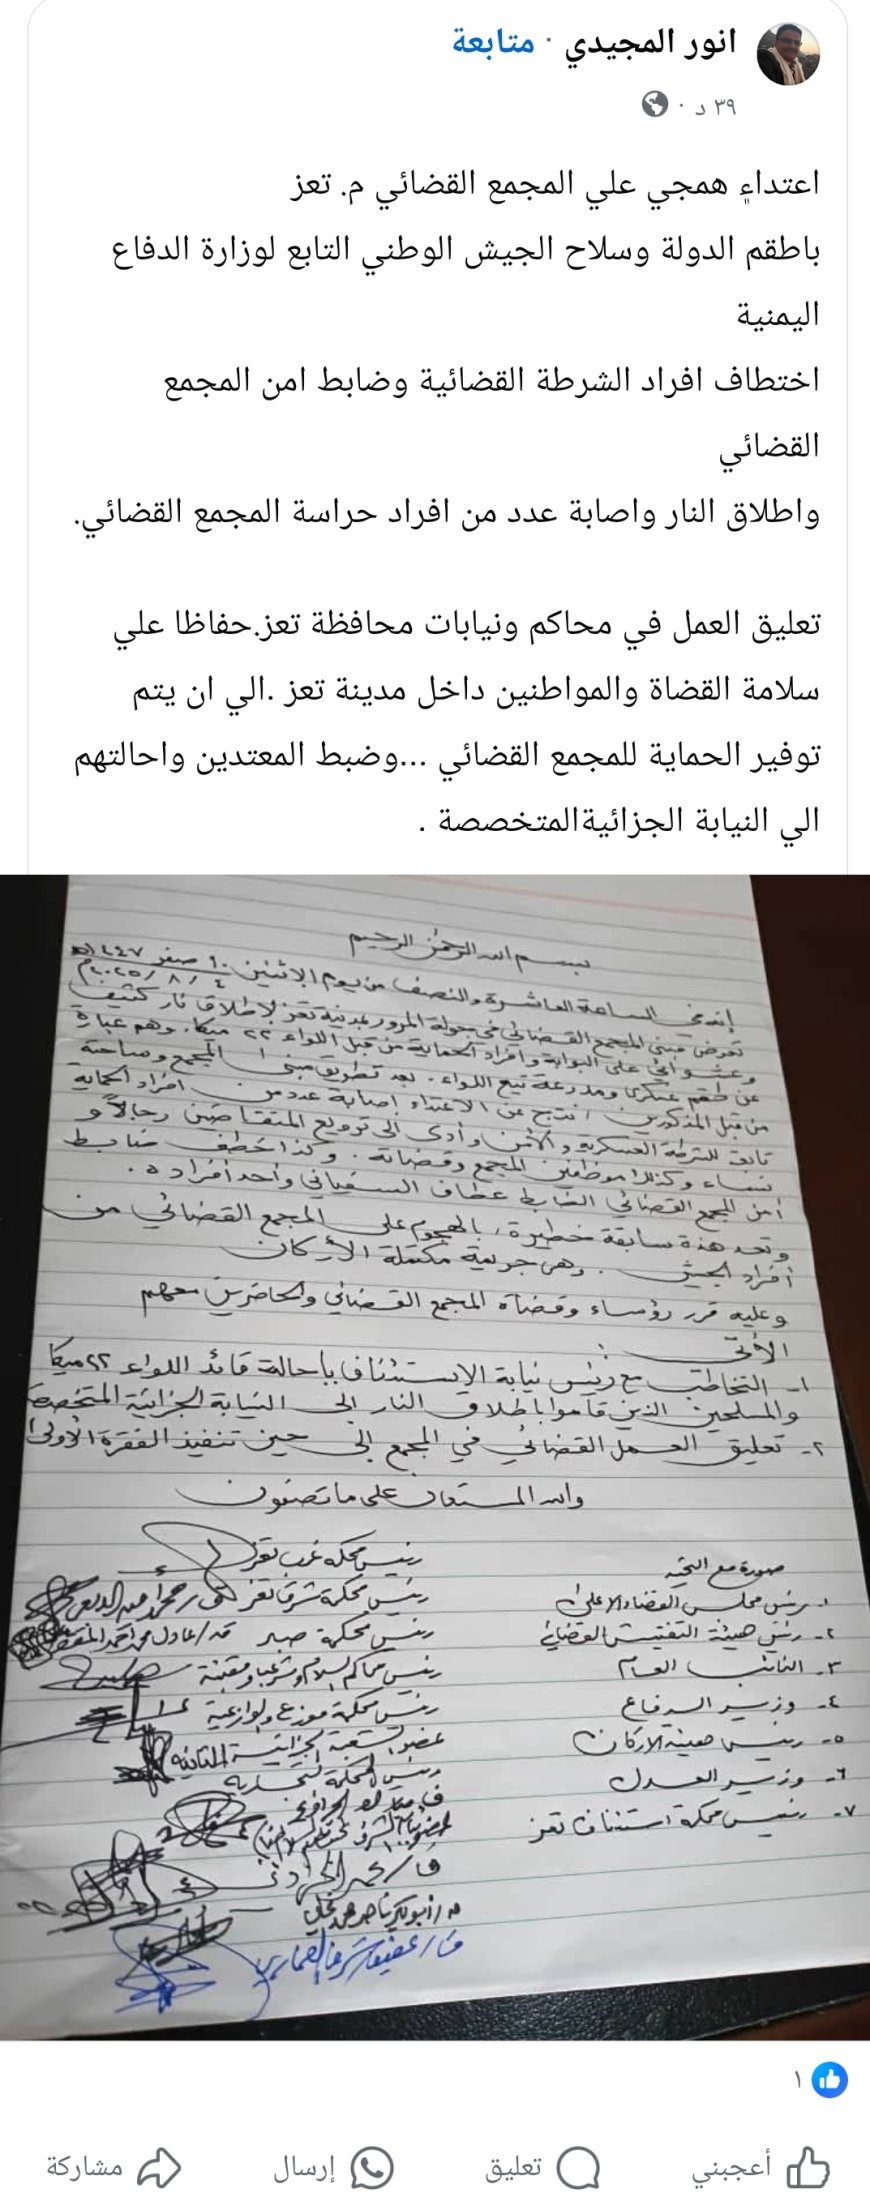 انور المجيدي · متابعة
٣٩ د ·
اعتداءٍ همجي علي المجمع القضائي م. تعز
باطقم الدولة وسلاح الجيش الوطني التابع لوزارة الدفاع
اليمنية
اختطاف افراد الشرطة القضائية وضابط امن المجمع
القضائي
واطلاق النار واصابة عدد من افراد حراسة المجمع القضائي.
تعليق العمل في محاكم ونيابات محافظة تعز.حفاظا علي
سلامة القضاة والمواطنين داخل مدينة تعز .الي ان يتم
توفير الحماية للمجمع القضائي ...وضبط المعتدين واحالتهم
الي النيابة الجزائيةالمتخصصة .
بسم الله الرحمن الرحيم
إنه في الساعة العاشرة والنصف من يوم الاثنين ١٠ صفر ١٤٤٧هـ
٤ / ٨ / ٢٠٢٥م
تعرض مبنى المجمع القضائي في جولة المرور بمدينة تعز لإطلاق نار كثيف
وعشوائي على البوابة وافراد الحماية من قبل اللواء ٢٢ ميكا، وهم عبارة
عن طقم عسكري ومدرعة تتبع اللواء. بعد تطويق مبنى المجمع وساحته
من قبل المذكورين. نتج عن الاعتداء إصابة عدد من افراد الحماية
تابعة للشرطة العسكرية والأمن وأدى الى ترويع المتقاضين رجالاً و
نساء وكذلك موظفين المجمع وقضاته. وكذا خطف ضابط
أمن المجمع القضائي الضابط عطاف السفياني وأحد أفراده.
وتعد هذه سابقة خطيرة، بالهجوم على المجمع القضائي من
أفراد الجيش . وهي جريمة مكتملة الأركان
وعليه قرر رؤساء وقضاة المجمع القضائي والحاضرين معهم
الأتي :
١- التخاطب مع رئيس نيابة الإستئناف بإحالة قائد اللواء ٢٢ ميكا
والمسلحين الذين قاموا باطلاق النار الى النيابة الجزائية المتخصصة
٢- تعليق العمل القضائي في المجمع إلى حين تنفيذ الفقرة الأولى
والله المستعان على ما تصفون
صورة مع التحية
١- رئيس مجلس القضاء الاعلى
٢- رئيس هيئة التفتيش القضائي
٣- النائب العام
٤- وزير الدفاع
٥- رئيس هيئة الاركان
٦- وزير العدل
٧- رئيس محكمة استئناف تعز
رئيس محكمة غرب تعز
رئيس محكمة شرق تعز
رئيس محكمة صبر
رئيس محاكم
رئيس محكمة موزع والوازعية
عضو الشعبة الجزائية الثانية
رئيس المحكمة التجارية
١
أعجبني
تعليق
إرسال
مشاركة